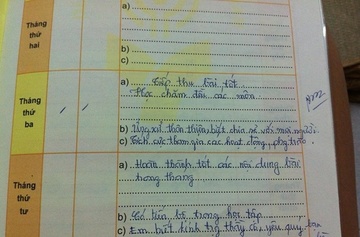 a)
Tháng
thứ
hai
b)
c)
a) Tiếp thu bài tốt
Học chăm đều các môn
Tháng
thứ
ba
b) Ứng xử thân thiện, biết chia sẻ với mọi người
c) Tích cực tham gia các hoạt động, phong trào
a) Hoàn thành tốt các nội dung
trong tháng
Tháng
thứ
tư
b) Có tiến bộ trong học tập
c) Em biết kính trọng thầy cô, yêu quý bạn